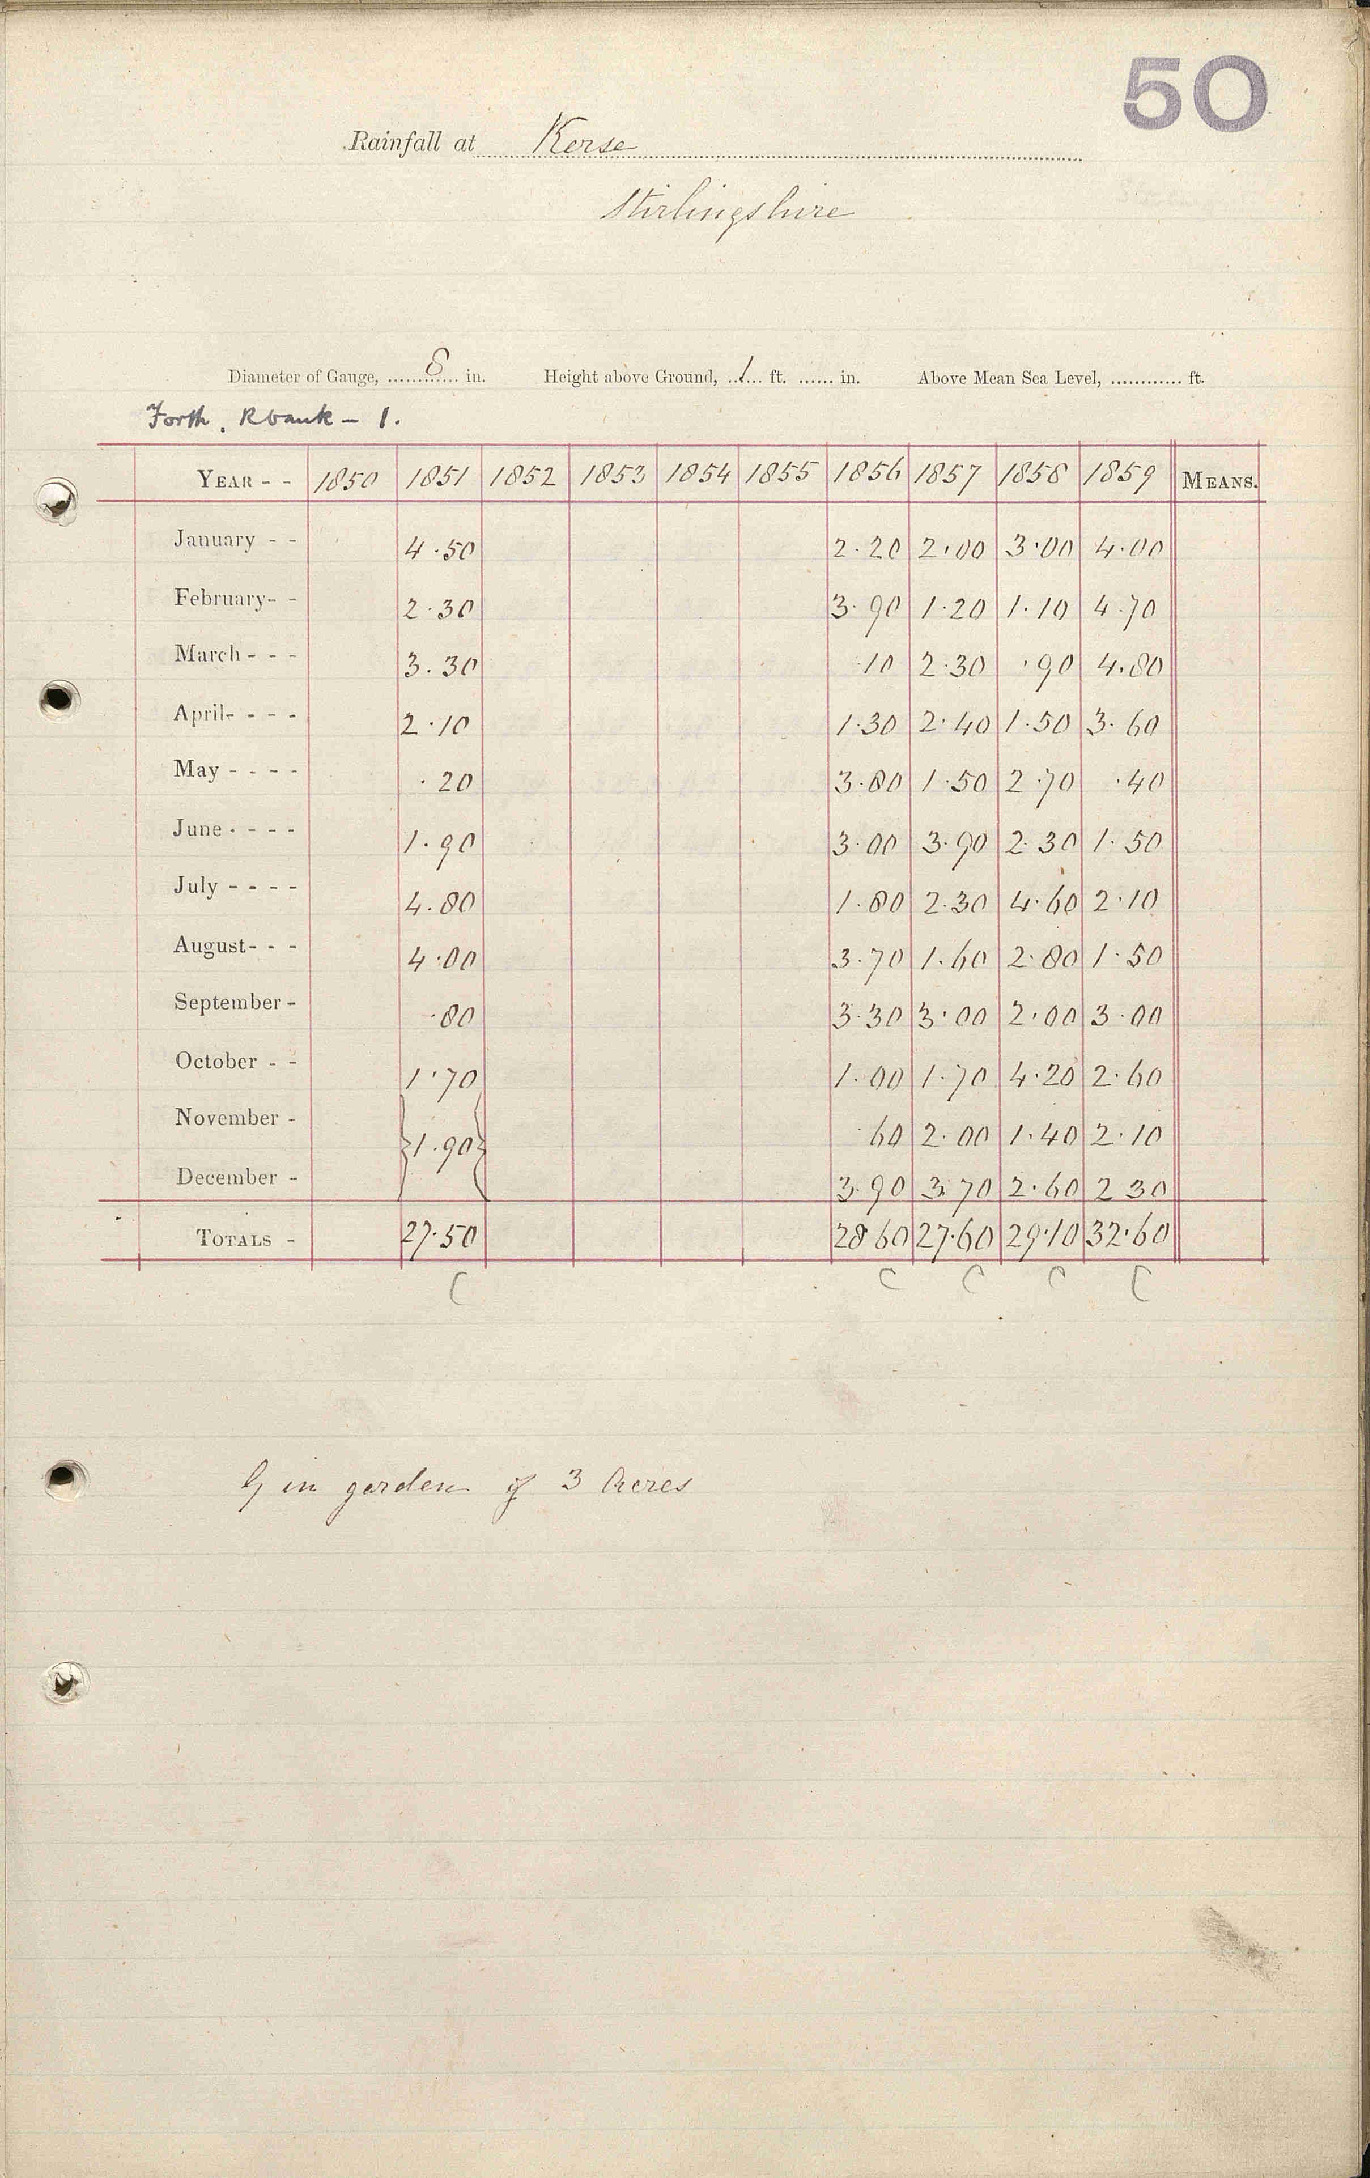 50
Rainfall at Kerse
Stirlingshire
Diameter of Gauge, ....8.... in. Height above Ground, ..1.. ft. ...... in. Above Mean Sea Level, ............ ft.
Forth. R bank - 1.
YEAR - - 1850 1851 1852 1853 1854 1855 1856 1857 1858 1859 MEANS.
January - - 4.50 2.20 2.00 3.00 4.00
February- - 2.30 3.90 1.20 1.10 4.70
March - - - 3.30 .10 2.30 .90 4.80
April- - - - 2.10 1.30 2.40 1.50 3.60
May - - - - .20 3.80 1.50 2.70 .40
June - - - - 1.90 3.00 3.90 2.30 1.50
July - - - - 4.80 1.80 2.30 4.60 2.10
August- - - 4.00 3.70 1.60 2.80 1.50
September - .80 3.30 3.00 2.00 3.00
October - - 1.70 1.00 1.70 4.20 2.60
November - } 1.90 { .60 2.00 1.40 2.10
December - 3.90 3.70 2.60 2.30
TOTALS - 27.50 28.60 27.60 29.10 32.60
C C C C C
G in garden of 3 Acres